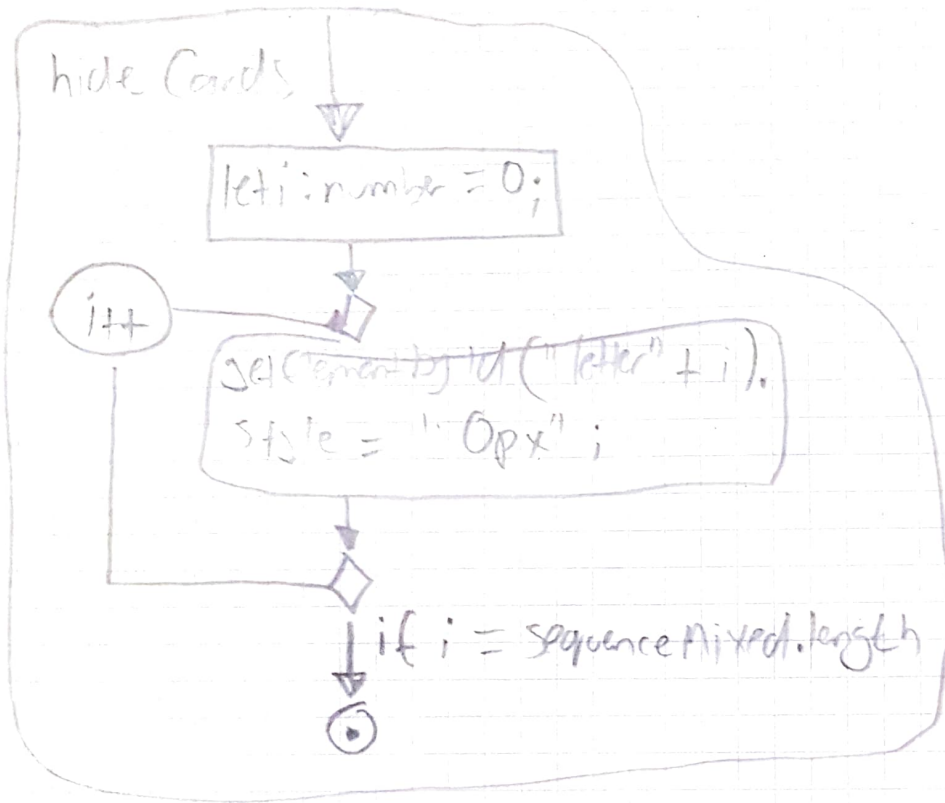 hide Cards
let i : number = 0;
i++
getElementById ("letter" + i).
style = "0px" ;
if i = sequenceMixed.length